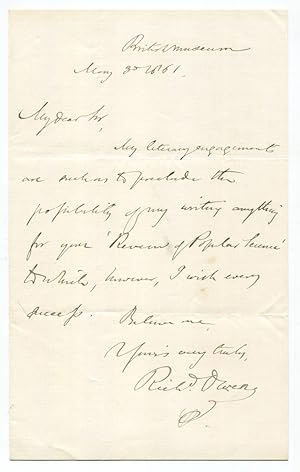 British Museum
May 3d 1861.
My dear Sir,
My literary engagements
are such as to preclude the
possibility of my writing anything
for your 'Review of Popular Science'
to which, however, I wish every
success. Believe me,
Your's very truly,
Richd. Owen